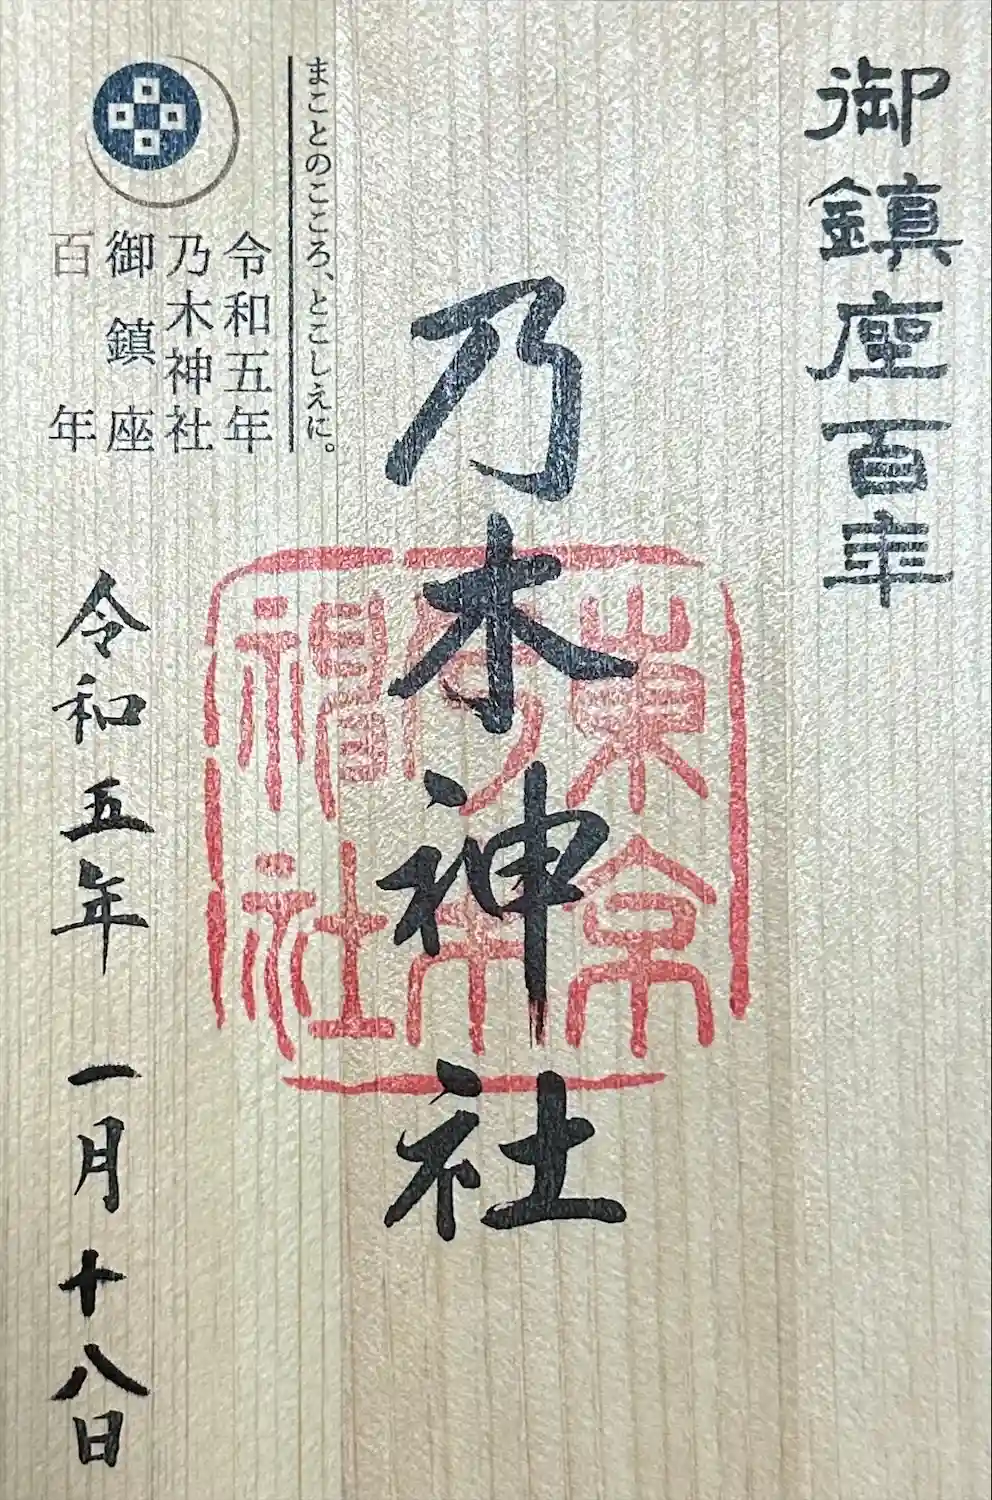 御鎮座百年
乃木神社
東京
乃木
神社
まことのこころ、とこしえに。
令和五年
乃木神社
御鎮座
百年
令和五年 一月十八日